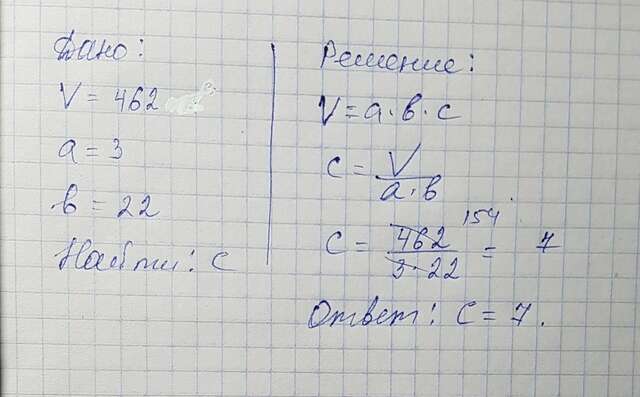 Дано:
V = 462
a = 3
b = 22
Найти: c
Решение:
V = a · b · c
c = V / a · b
c = 462 / 3 · 22 = 7
154
Ответ: c = 7.